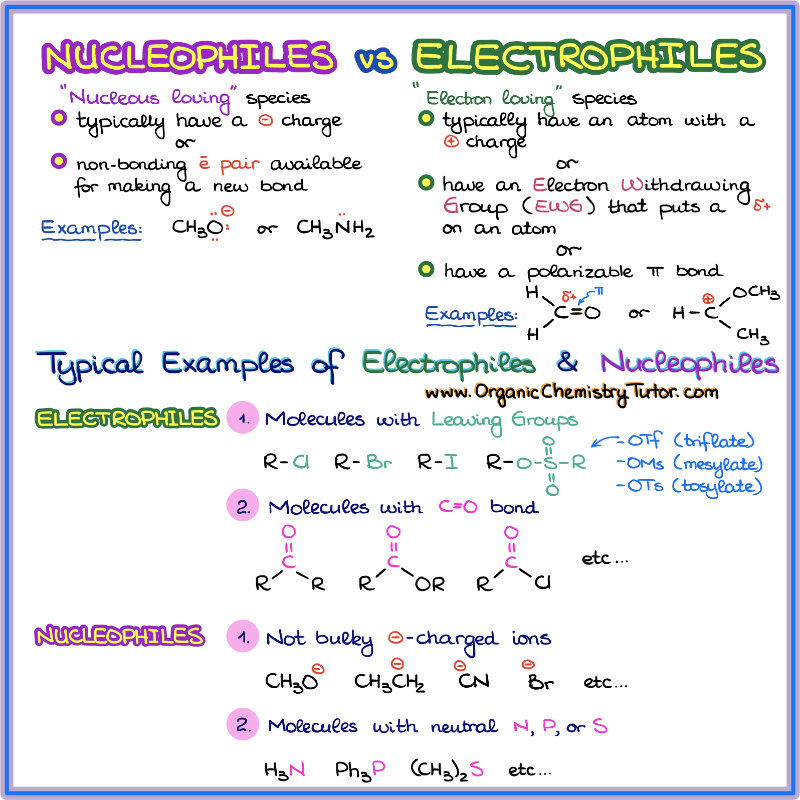 NUCLEOPHILES vs ELECTROPHILES
"Nucleous loving" species
typically have a ⊖ charge
or
non-bonding ē pair available
for making a new bond
Examples: CH₃O⊖ or CH₃NH₂
"Electron loving" species
typically have an atom with a
⊕ charge
or
have an Electron Withdrawing
Group (EWG) that puts a δ+
on an atom
or
have a polarizable π bond
Examples: H H C=O δ+ π or H-C ⊕ OCH₃ CH₃
Typical Examples of Electrophiles & Nucleophiles
www.OrganicChemistryTutor.com
ELECTROPHILES
1. Molecules with Leaving Groups
R-Cl R-Br R-I R-O-S-R O O
-OTf (triflate)
-OMs (mesylate)
-OTs (tosylate)
2. Molecules with C=O bond
O O O
C C C etc...
R R R OR R Cl
NUCLEOPHILES
1. Not bulky ⊖-charged ions
CH₃O⊖ CH₃CH₂⊖ ⊖CN ⊖Br etc...
2. Molecules with neutral N, P, or S
H₃N Ph₃P (CH₃)₂S etc...